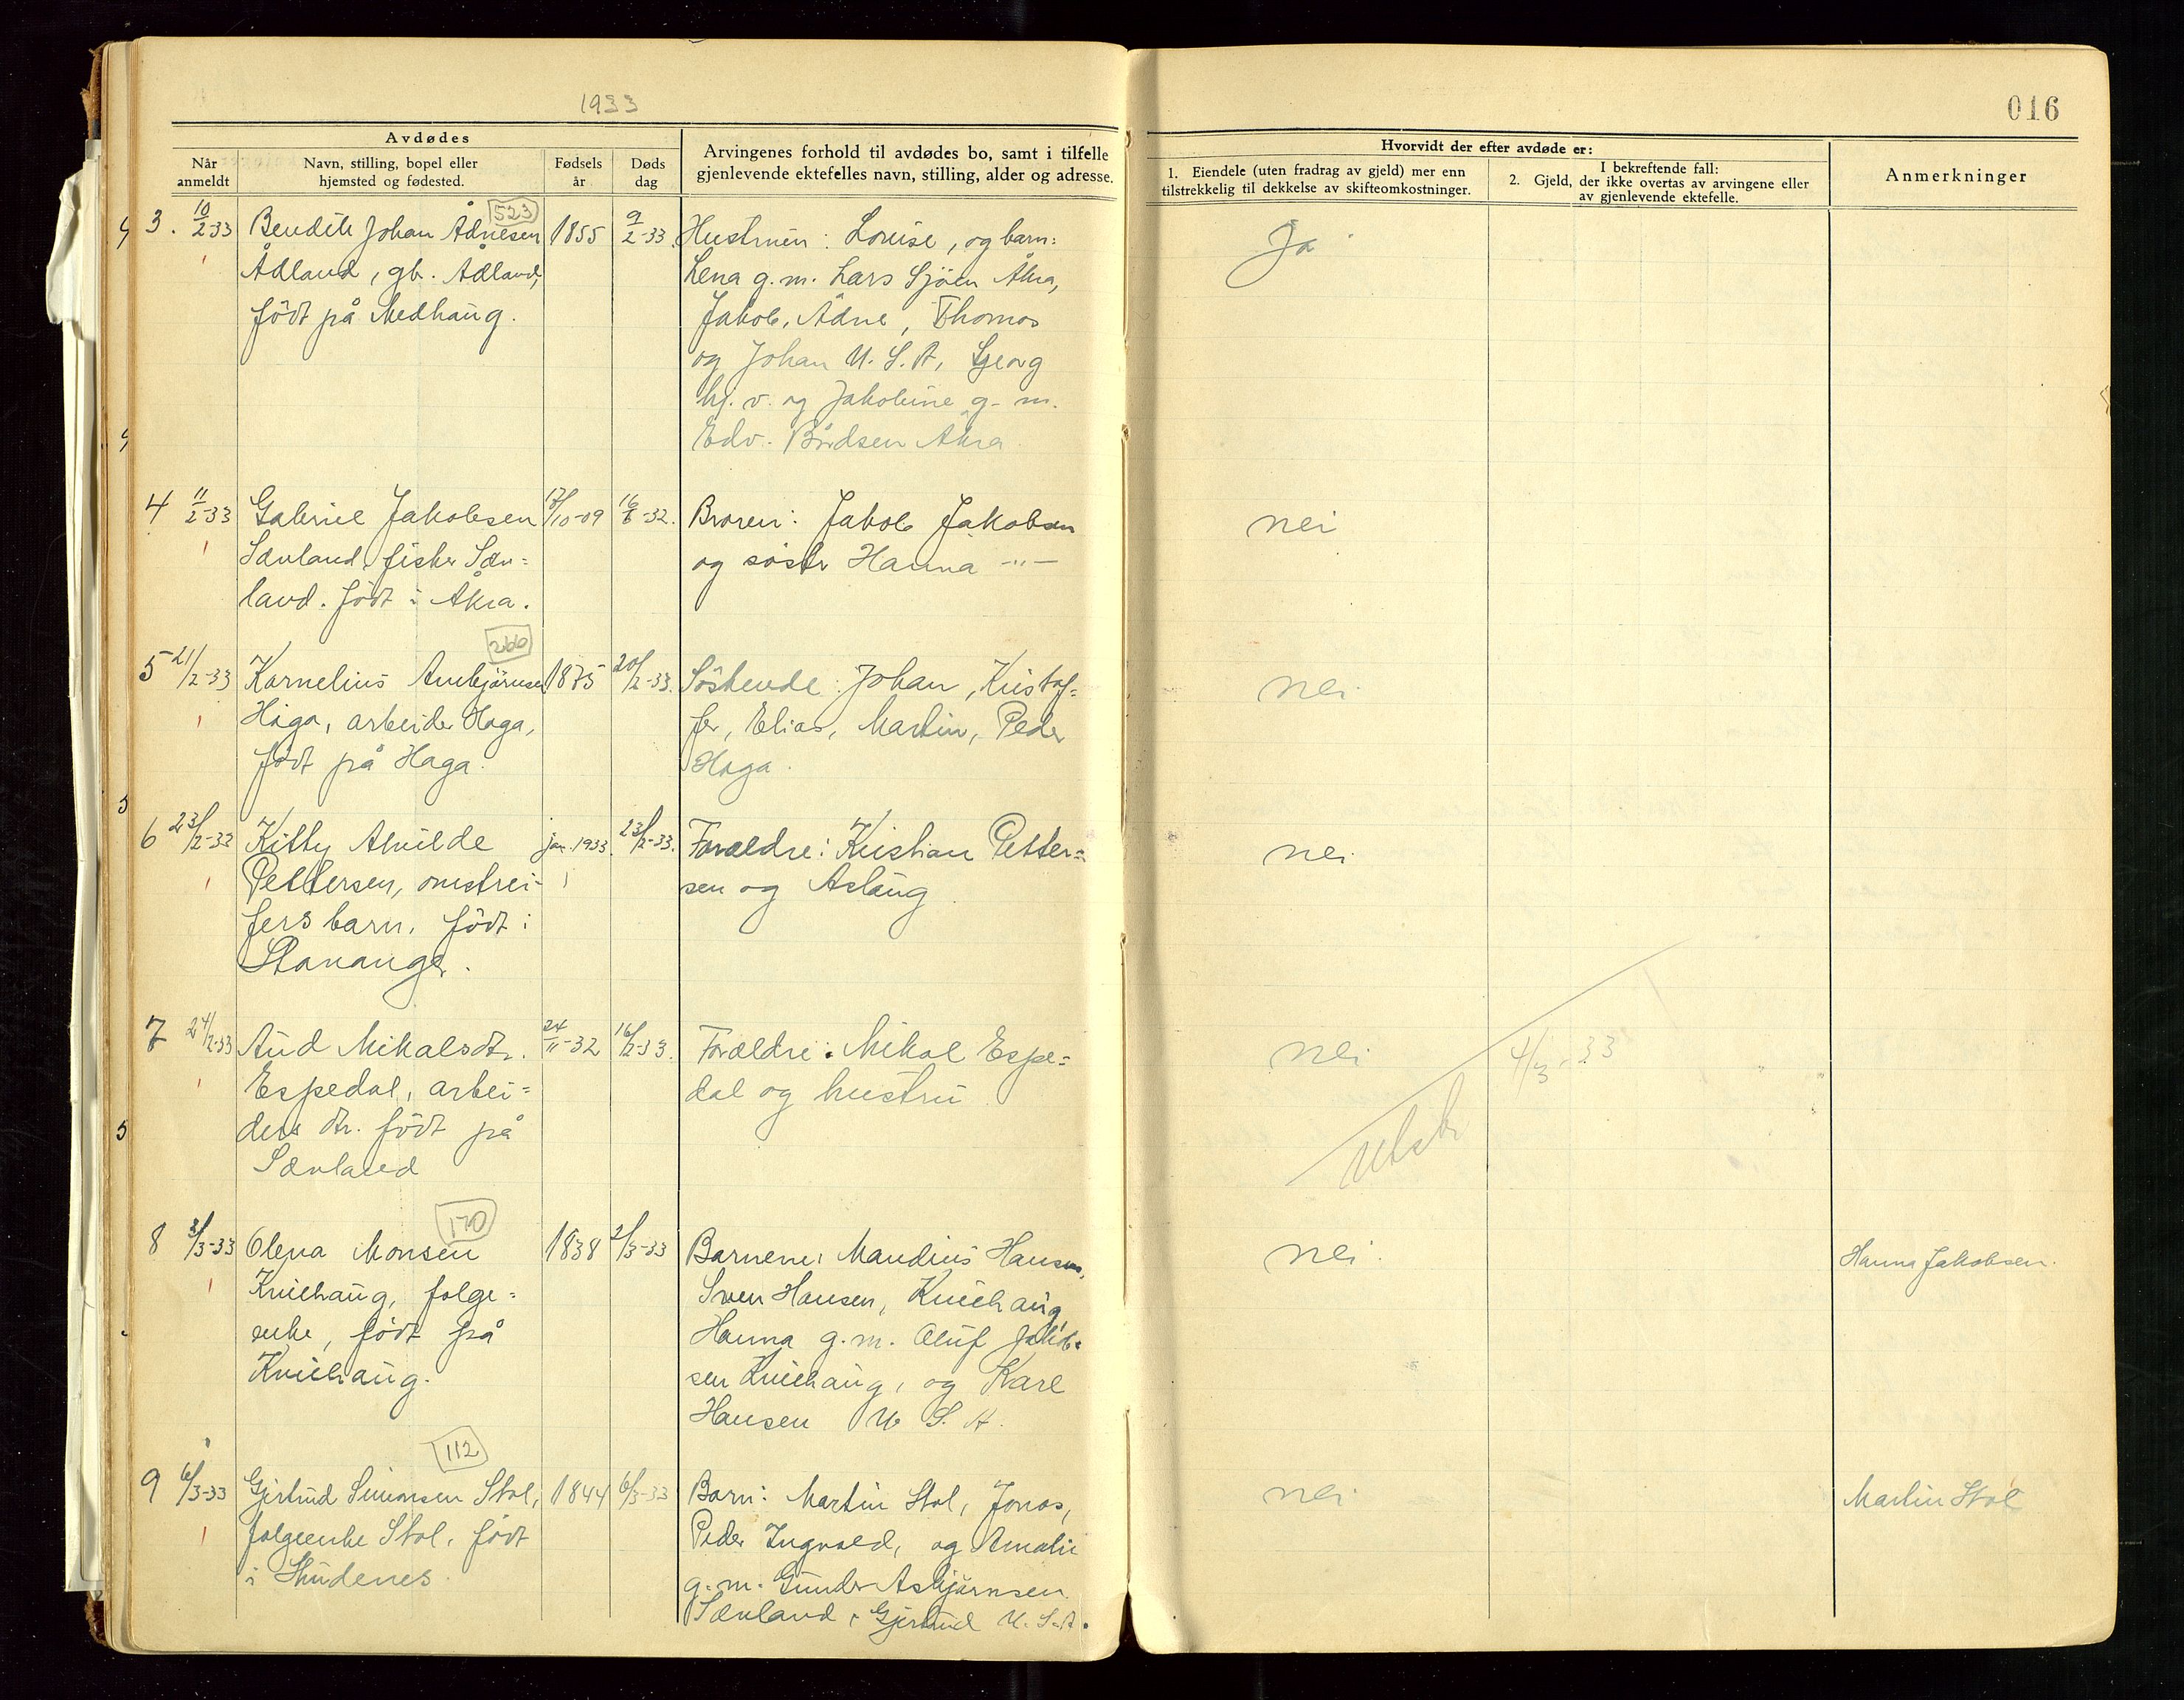 1933
016
Avdødes
Når anmeldt
Navn, stilling, bopel eller hjemsted og fødested.
Fødsels år
Døds dag
Arvingenes forhold til avdødes bo, samt i tilfelle
gjenlevende ektefelles navn, stilling, alder og adresse.
Hvorvidt der efter avdøde er:
1. Eiendele (uten fradrag av gjeld) mer enn
tilstrekkelig til dekkelse av skifteomkostninger.
I bekreftende fall:
2. Gjeld, der ikke overtas av arvingene eller
av gjenlevende ektefelle.
Anmerkninger
523
3. 10/2-33 Bendik Johan Ådnesen 1855 9/2-33. Hustruen: Lovise, og barn: Ja
Ådland, gb. Ådland, Lena g.m. Lars Sjöen Åkra,
född på Medhaug. Jakob, Ådne, Thomas
og Johan U.S.A, Georg
hj. v. og Jakobine g. m.
Edv. Bårdsen Åkra
4 11/2-33 Gabriel Jakobsen 17/10-09 16/8-32. Broren: Jakob Jakobsen nei
Sævland, fisker Sæv=
og söster Hanna -"-
land. födt i Åkra.
266
5 21/2-33 Kornelius Ambjörnsen 1875 20/2-33. Söskende: Johan, Kristof= nei
Haga, arbeider Haga, fer, Elias, Martin, Peder
födt på Haga. Haga.
6 23/2-33 Kitty Alvilde jan. 1933. 23/2-33. Forældre: Kristian Petter= nei
Pettersen, omstrei- sen og Aslaug.
fers barn. födt i
Stavanger.
7 24/2-33 Aud Mikalsdtr. 24/11-32 16/2-33. Forældre: Mikal Espe= nei 4/3-33
Espedal, arbei= dal og hustru
ders dtr. födt på
utskr
Sævland
170
8 3/3-33 Olena Monsen 1838 2/3-33 Barnene: Mandius Hansen, nei. Hanna Jakobsen.
Kvilhaug, folge= Sven Hansen, Kvilhaug,
enke, födt på Hanna g.m. Oluf Jakob=
Kvilhaug. sen Kvilhaug, og Karl
Hansen U S. A.
112
9 6/3-33 Gjertrud Simonsen Stol, 1844 6/3-33 Barn: Martin Stol, Jonas, nei Martin Stol
folgeenke Stol. födt Peder Ingvald, og Amalie
i Skudenes. g.m. Gunder Asbjörnsen
Sævland, Gjertrud U.S.A.